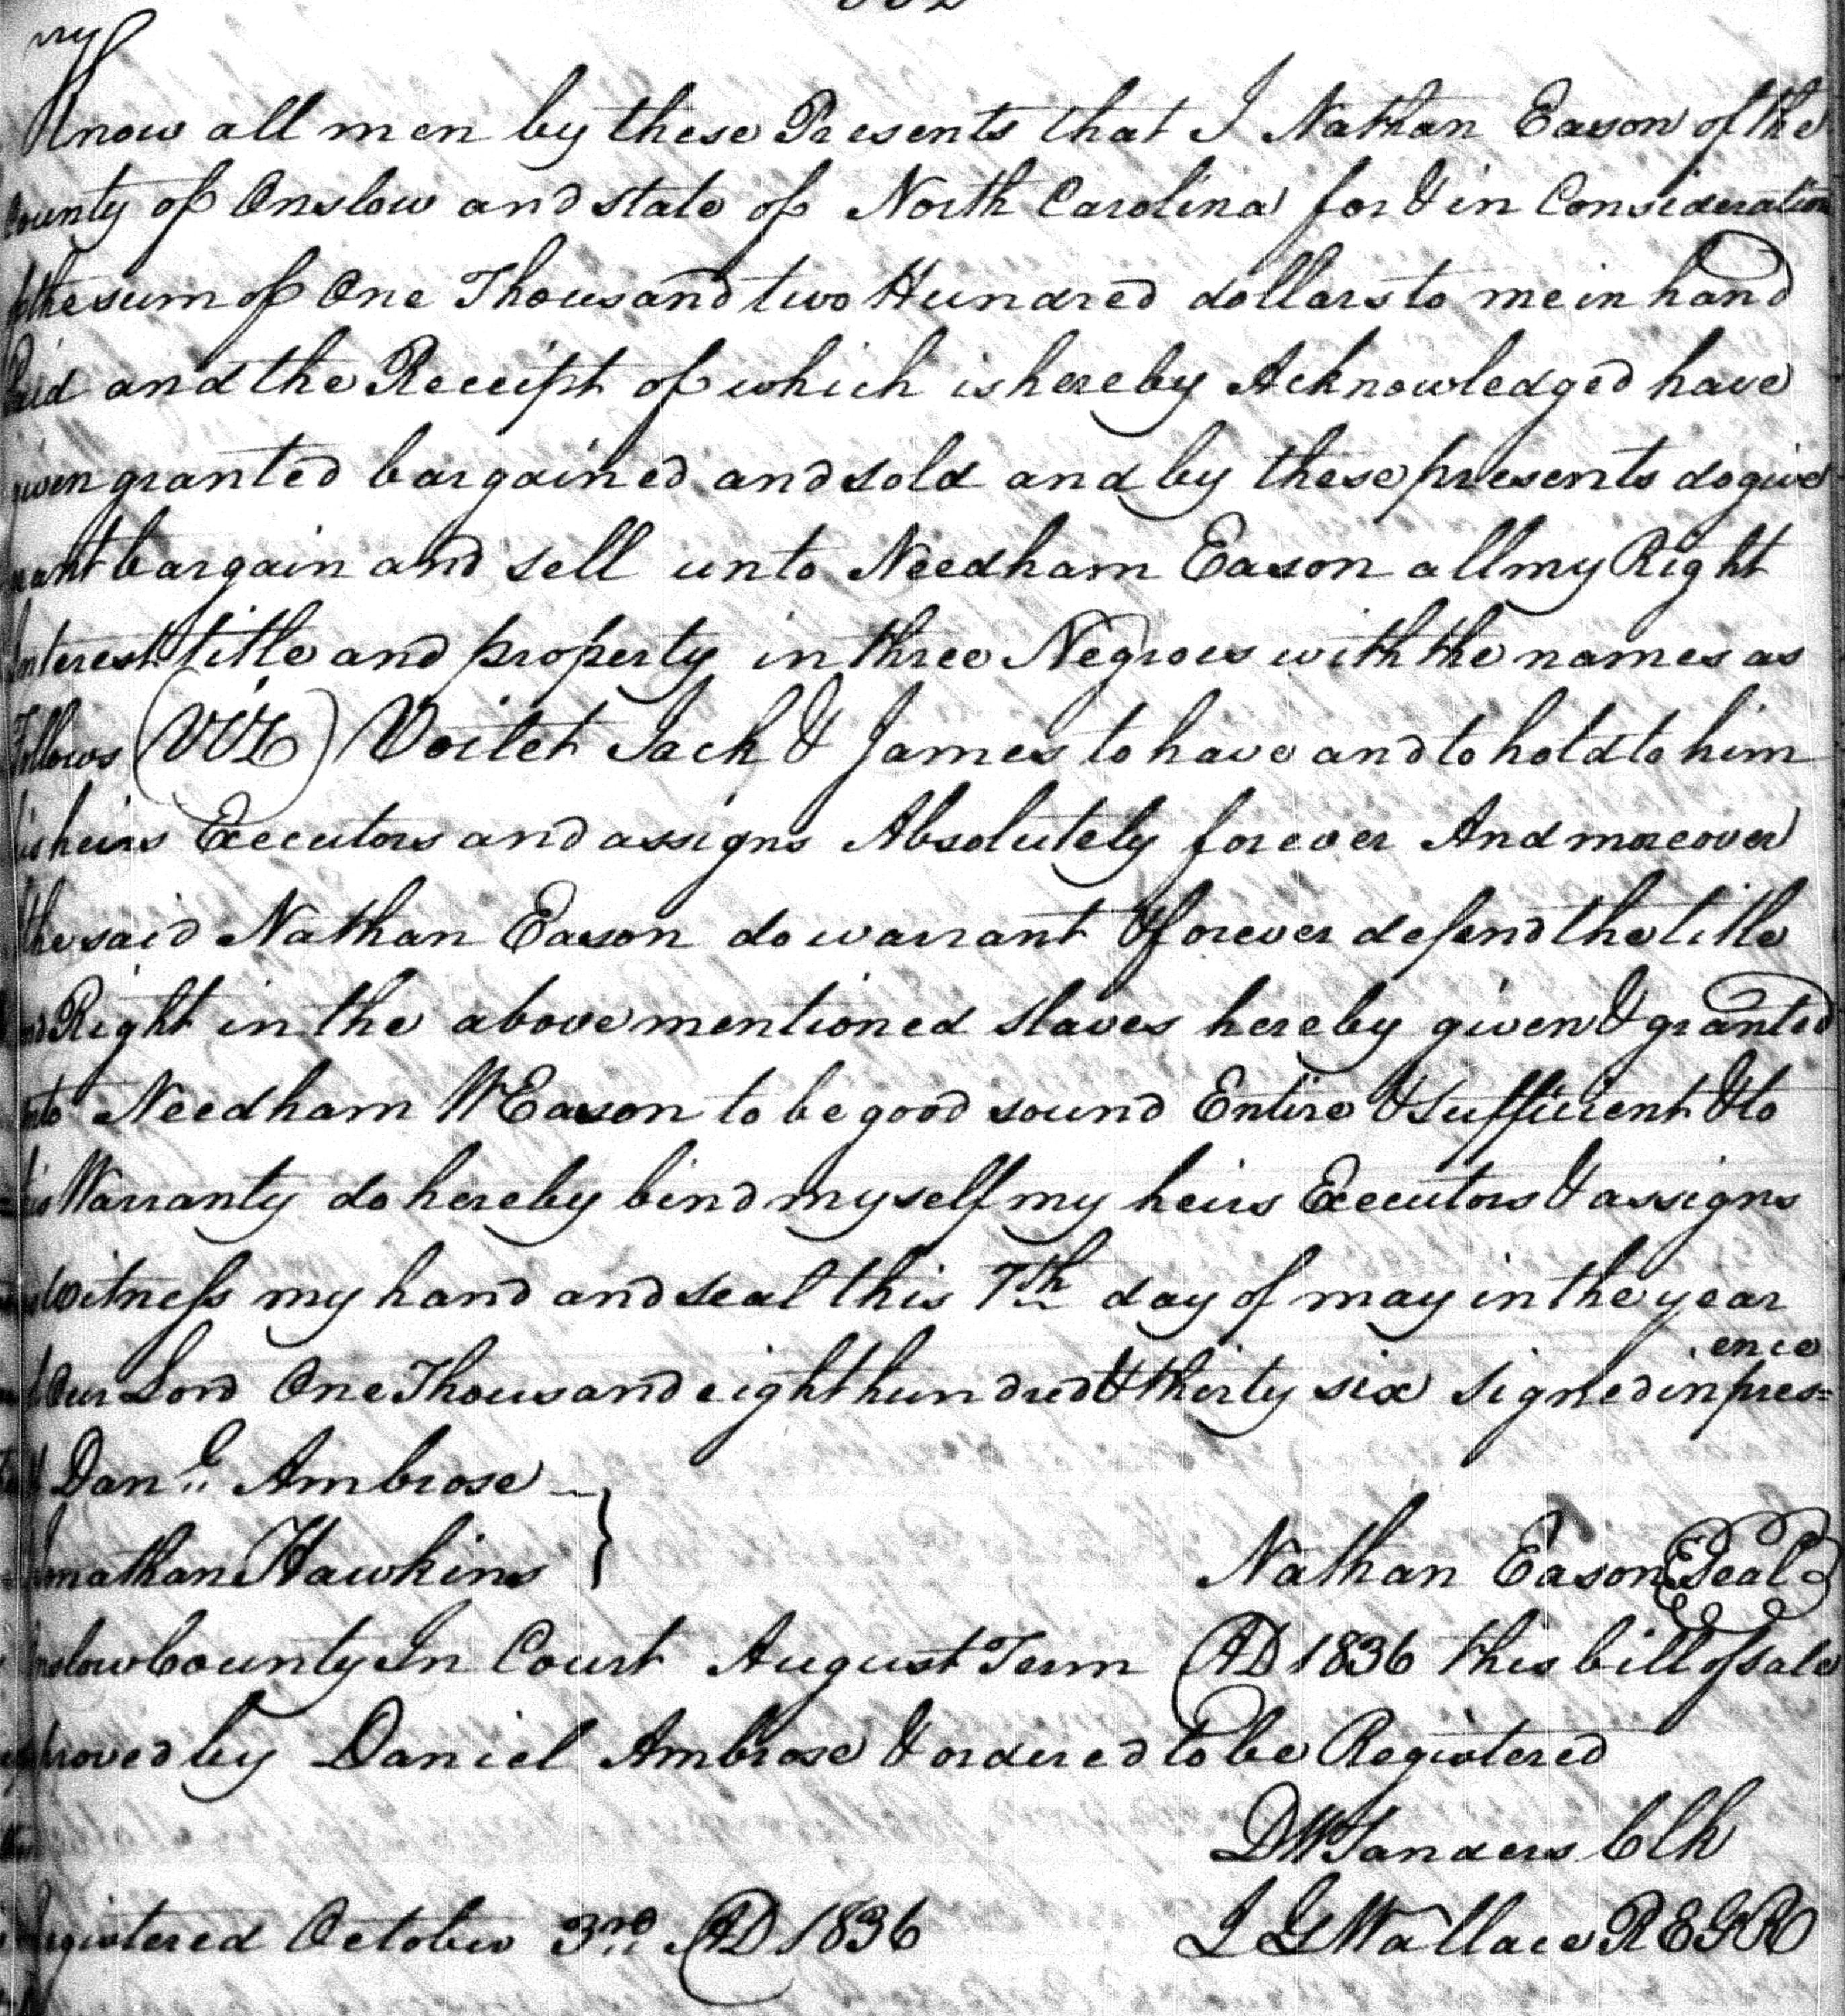 Know all men by these Presents that I Nathan Eason of the
County of Onslow and state of North Carolina for & in Consideration
of the sum of One Thousand two Hundred dollars to me in hand
Paid and the Receipt of which is hereby Acknowledged have
given granted bargained and sold and by these presents do give
grant bargain and sell unto Needham Eason all my Right
Interest title and property in three Negroes with the names as
Follows (VIZ) Voilet Jack & James to have and to hold to him
his heirs Executors and assigns Absolutely forever And moreover
the said Nathan Eason do warrant & forever defend the title
and Right in the above mentioned slaves hereby given & granted
unto Needham W Eason to be good sound Entire & sufficient & to
this Warranty do hereby bind myself my heirs Executors & assigns
Witness my hand and seal this 7th day of may in the year
ence
of Our Lord One Thousand eight hundred & thirty six signed in pres=
of Danl. Ambrose
Jonathan Hawkins } Nathan Eason Seal
Onslow County In Court August Term AD 1836 this bill of sale
proved by Daniel Ambrose & ordered to be Registered
D W Sanders Clk
Registered October 3rd AD 1836 L G Wallace REGR